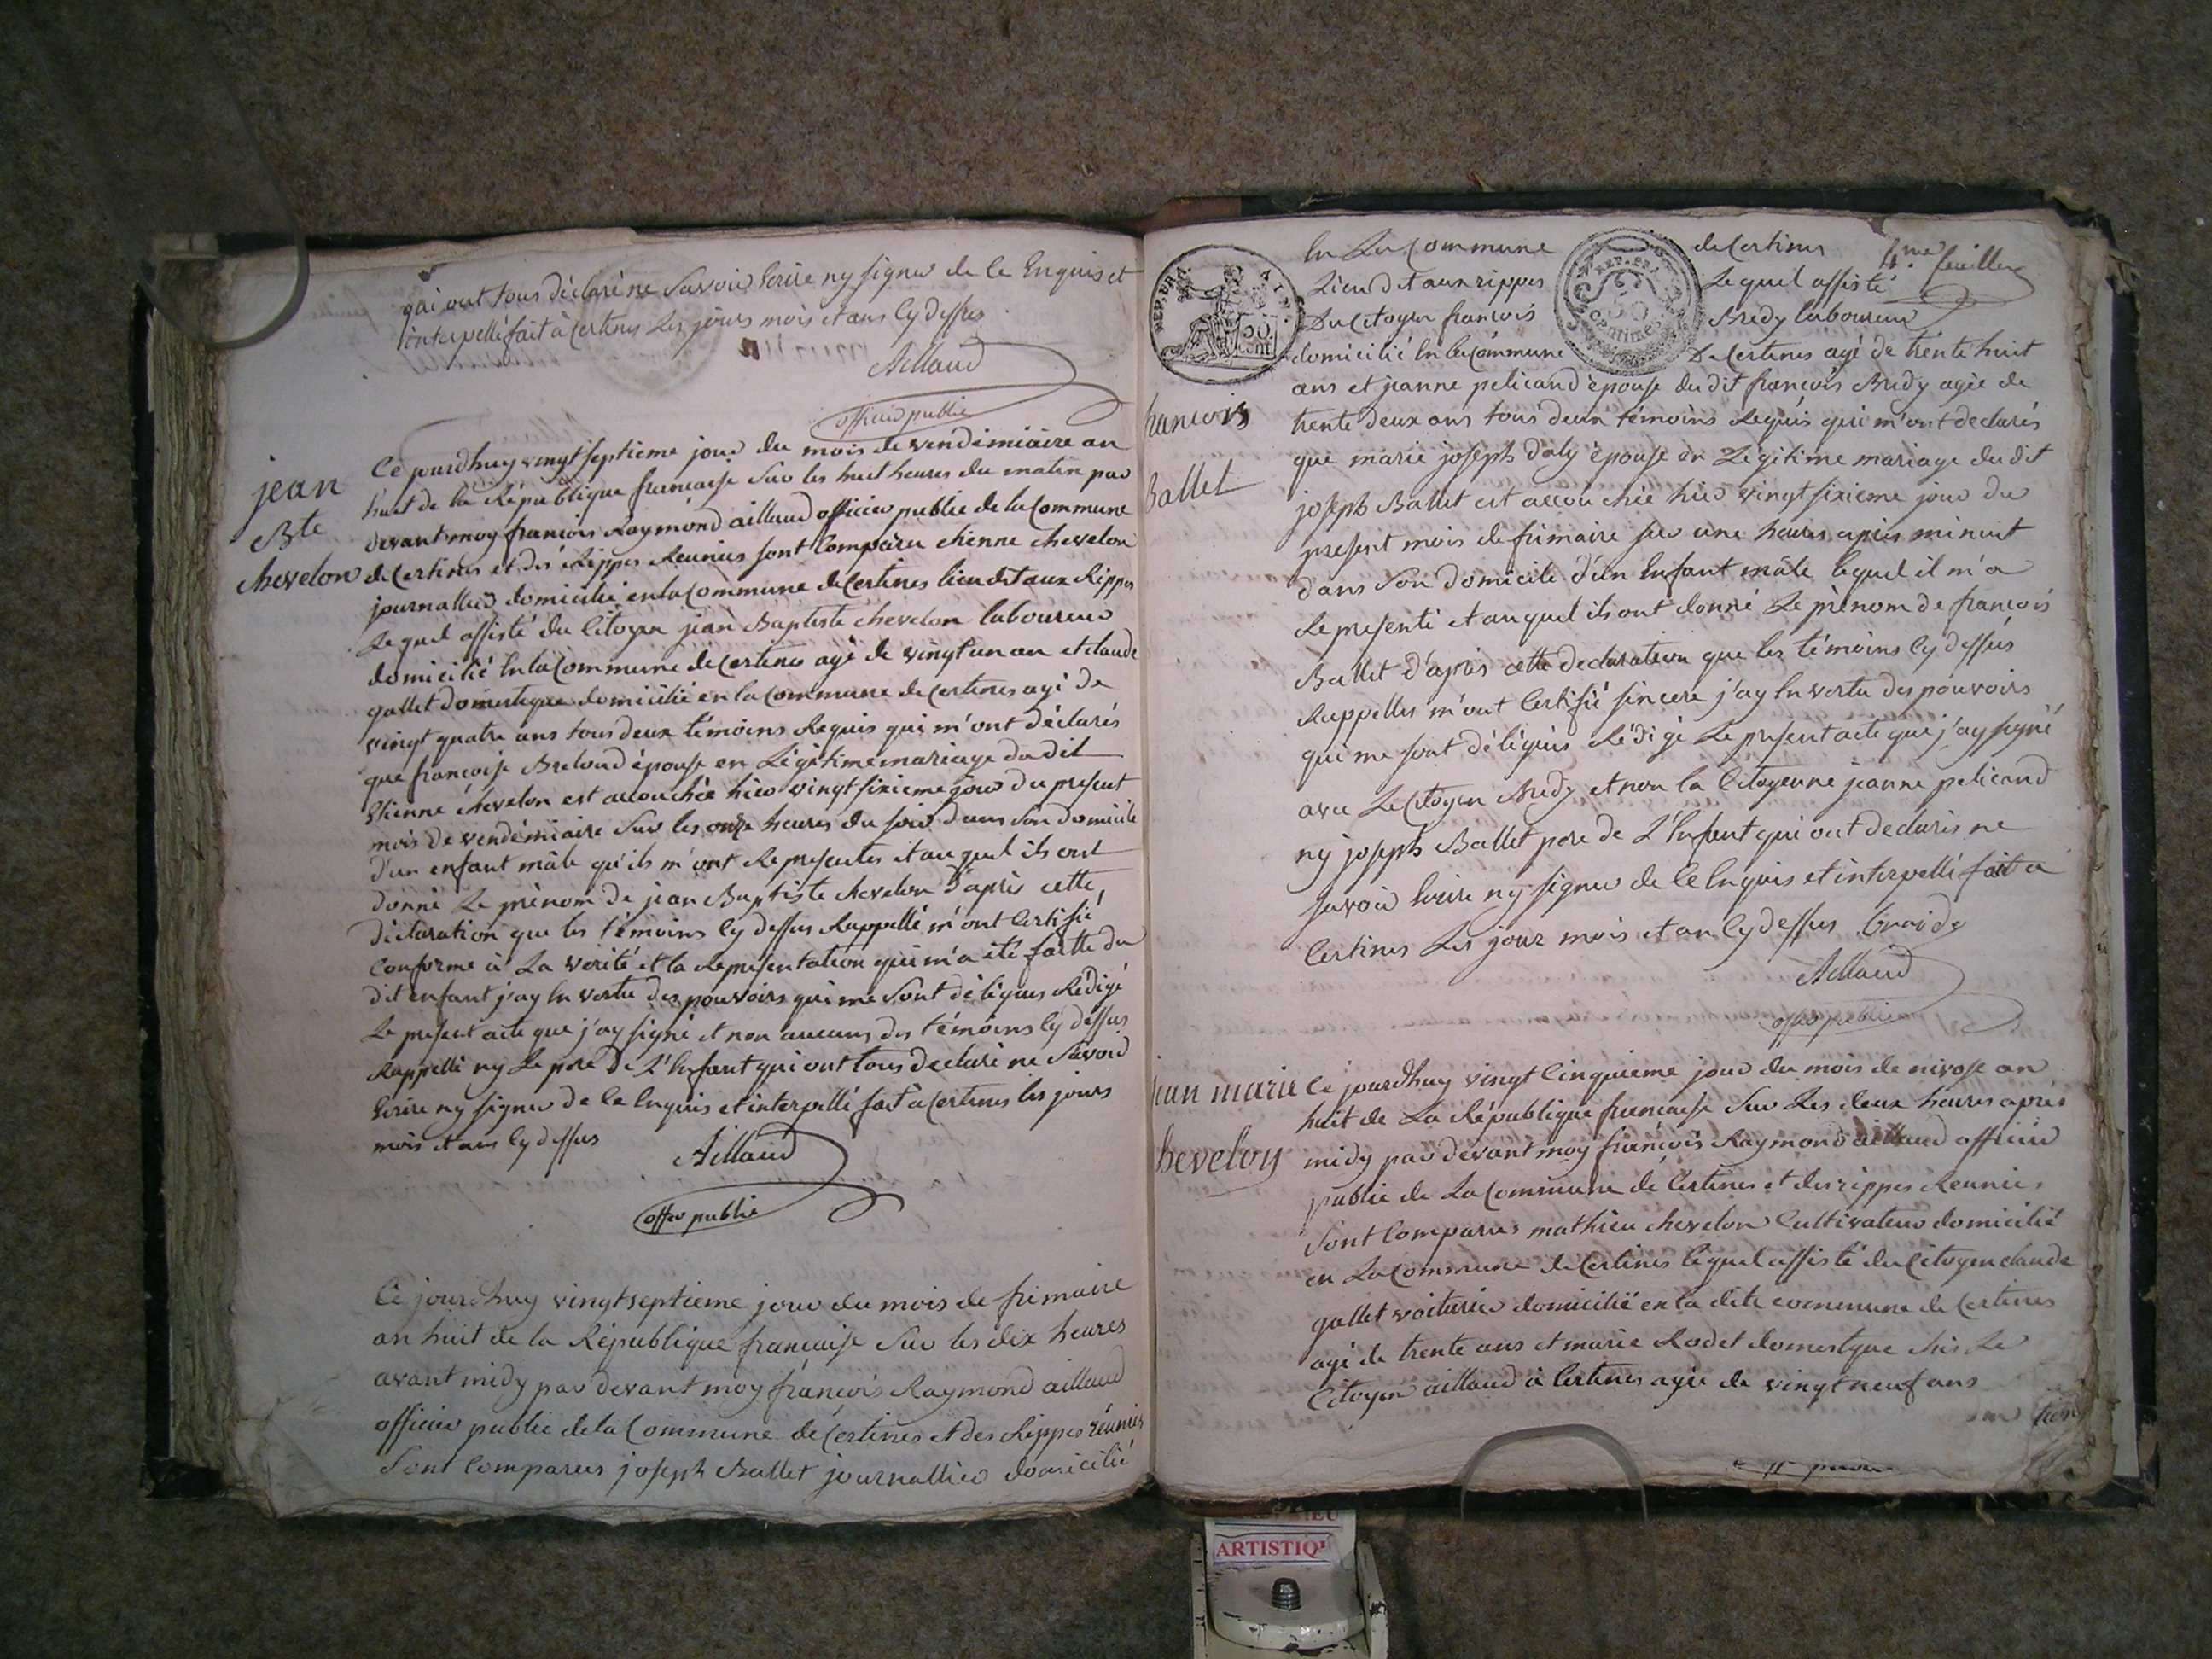 qui ont tous déclaré ne savoir Ecrire ny signer de ce Enquis et
interpellé fait à Certines Les jours mois et ans Cy dessus
Aillaud
officier public
jean
Bte
chevelon
Ce jourdhuy vingt septieme jour du mois de vendimiaire an
huit de la République francaise sur les huit heures du matin par
devant moy francois Raymond aillaud officier public de la Commune
de Certines et des Rippes Reunies sont Comparu etienne chevelon
journallier domicilié en la Commune de Certines lieu dit aux Rippes
Lequel assisté du Citoyen jean Baptiste chevelon laboureur
domicilié En la Commune de Certines agé de vingt un an et claude
gallet domestique domicilié en la Commune de Certines agé de
vingt quatre ans tous deux témoins Requis qui m'ont déclarés
que francoise Breloud épouse en Légitime mariage du dit
Etienne chevelon est accouchée hier vingt sixieme jour du present
mois de vendémiaire sur les onze heures du soir dans son domicile
d'un enfant mâle qu'ils m'ont Representés et au quel ils ont
donné Le prénom de jean Baptiste chevelon d'après cette
déclaration que les témoins Cy dessus Rappellé m'ont Certifié
Conforme à La vérité et la Representation qui m'a été faitte du
dit enfant j'ay En vertu des pouvoirs qui me sont délégues Rédigé
Le present acte que j'ay signé et non aucuns des témoins Cy dessus
Rappellé ny Le pere de L'Enfant qui ont tous déclaré ne Savoir
Ecrire ny signer de Ce Enquis et interpellé fait a Certines les jours
mois et ans Cy dessus
Aillaud
offer public
Ce jourdhuy vingt septieme jour du mois de frimaire
an huit de la République francaise sur les dix heures
avant midy par devant moy francois Raymond aillaud
officier public de la Commune de Certines et des Rippes réunies
Sont Comparus joseph Ballet journallier domicilié
En La Commune de Certines
4me feuillet
REP. FRA
50 Cent
REP. FRA
50 Centimes
Lieu dit aux rippes Lequel assisté
Du Citoyen francois Bredy laboureur
domicilié En la Commune De Certines agé de trente huit
ans et jeanne pelicand épouse du dit francois Bredy agée de
francois
Ballet
trente deux ans tous deux témoins Requis qui m'ont déclarés
que marie joseph daly épouse en Légitime mariage du dit
joseph Ballet est accouchée hier vingt sixieme jour du
present mois de frimaire sur une heures après minuit
dans son domicile d'un Enfant mâle lequel il m'a
Representé et auquel ils ont donné Le prénom de francois
Ballet d'après cette declaration que les témoins Cy dessus
Rappelles m'ont Certifié sincere j'ay En vertu des pouvoirs
qui me sont délégués Rédigé Le present acte que j'ay signé
avec Le Citoyen Bredy et non la Citoyenne jeanne pelicand
ny joseph Ballet pere de L'Enfant qui ont declarés ne
savoir Ecrire ny signer de Ce Enquis et interpellé fait a
Certines Les jour mois et an Cy dessus braidy
Aillaud
offer public
jean marie
chevelon
Ce jourdhuy vingt Cinquieme jour du mois de nivose an
huit de La République francaise sur Les deux heures après
midy par devant moy francois Raymond aillaud officier
public de La Commune de Certines et des rippes Reunies
sont Comparus mathieu chevelon Cultivateur domicilié
en La Commune de Certines lequel assisté du Citoyen claude
gallet voiturier domicilié en la dite commune de Certines
agé de trente ans et marie Rodet domestique chés Le
Citoyen aillaud à Certines agée de vingt neuf ans
ARTISTIQ